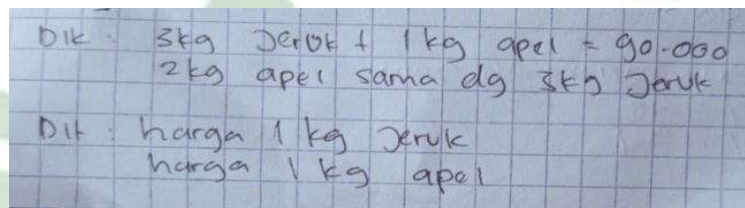 Dik : 3kg Jeruk + 1 kg apel = 90.000
2kg apel sama dg 3kg Jeruk
Dit : harga 1 kg Jeruk
harga 1 kg apel